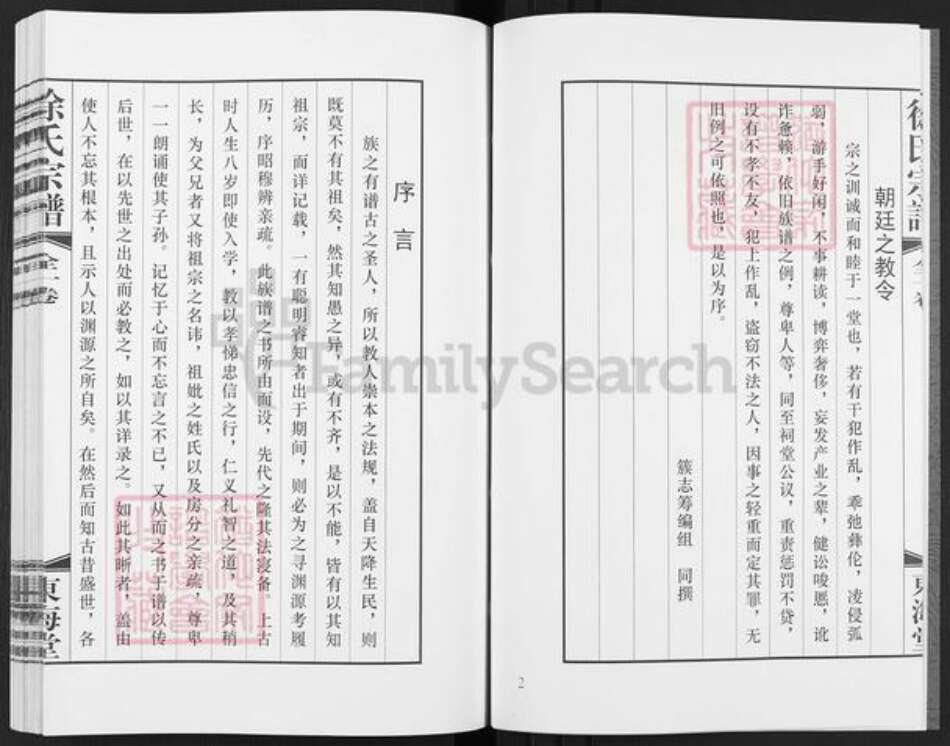 徐氏宗谱
全三卷
東海堂
朝廷之教令
宗之训诚而和睦于一堂也，若有干犯作乱，乖弛彝伦，凌侵孤
弱，游手好闲，不事耕读，博弈奢侈，妄发产业之辈，健讼唆慝，讹
诈惫赖，依旧族谱之例，尊卑人等，同至祠堂公议，重责惩罚不贷，
设有不孝不友，犯上作乱，盗窃不法之人，因事之轻重而定其罪，无
旧例之可依照也，是以为序。
簇志筹编组 同撰
2
序言
族之有谱古之圣人，所以教人崇本之法规，盖自天降生民，则
既莫不有其祖矣，然其知愚之异，或有不齐，是以不能，皆有以其知
祖宗，而详记载，一有聪明睿知者出于期间，则必为之寻渊源考履
历，序昭穆辨亲疏。此族谱之书所由而设，先代之隆其法寖备。上古
时人生八岁即使入学，教以孝悌忠信之行，仁义礼智之道，及其稍
长，为父兄者又将祖宗之名讳，祖妣之姓氏以及房分之亲疏，尊卑
一一朗诵使其子孙。记忆于心而不忘言之不已，又从而之书于谱以传
后世，在以先世之出处而必教之，如以其详录之。如此其晰者，盖由
使人不忘其根本，且示人以渊源之所自矣。在然后而知古昔盛世，各
徐氏宗谱
全三卷
東海堂
FamilySearch